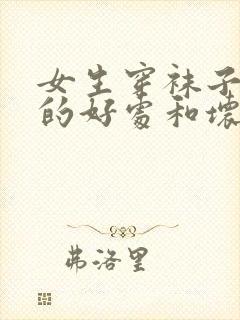 女生穿袜子
的好处和坏
弗洛里